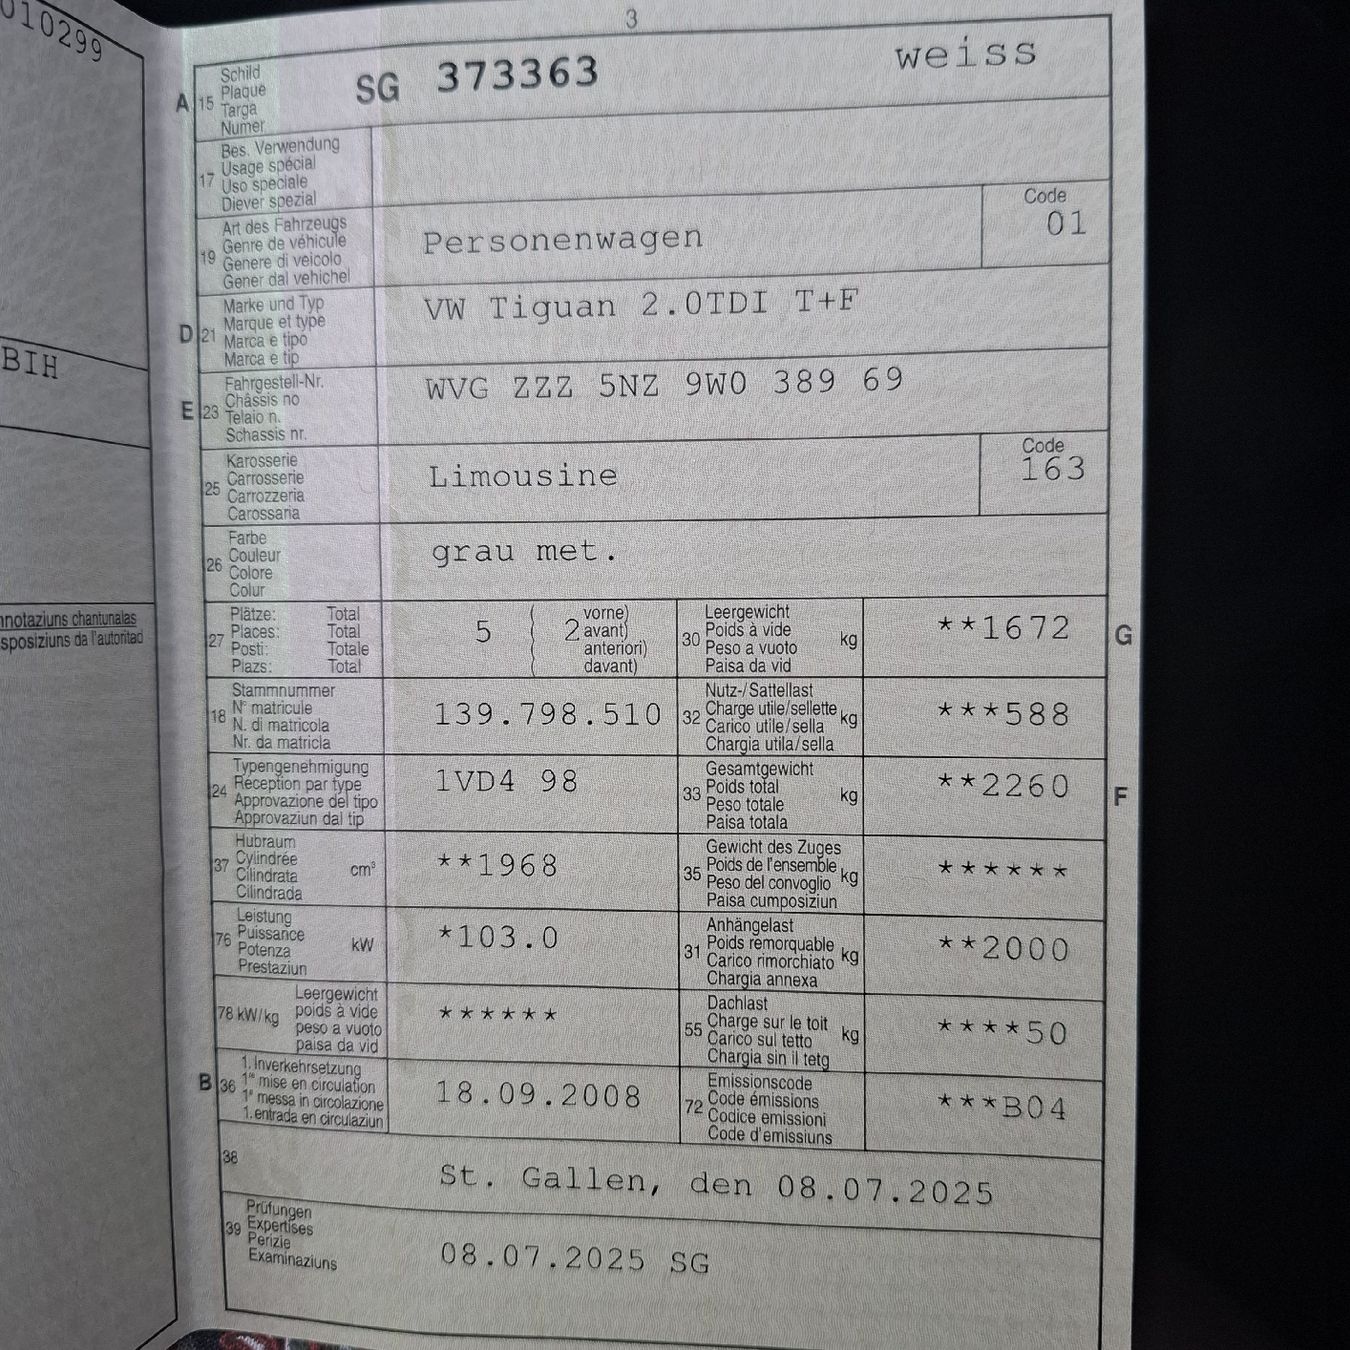 010299
BIH
nnotaziuns chantunalas
sposiziuns da l'autoritad
3
A 15 Schild
Plaque
Targa
Numer
SG 373363 weiss
17 Bes. Verwendung
Usage spécial
Uso speciale
Diever spezial
19 Art des Fahrzeugs
Genre de véhicule
Genere di veicolo
Gener dal vehichel
Personenwagen
Code
01
D 21 Marke und Typ
Marque et type
Marca e tipo
Marca e tip
VW Tiguan 2.0TDI T+F
E 23 Fahrgestell-Nr.
Châssis no
Telaio n.
Schassis nr.
WVG ZZZ 5NZ 9W0 389 69
25 Karosserie
Carrosserie
Carrozzeria
Carossaria
Limousine
Code
163
26 Farbe
Couleur
Colore
Colur
grau met.
27 Plätze: Total
Places: Total
Posti: Totale
Plazs: Total
5 ( 2 vorne)
( avant)
( anteriori)
( davant)
30 Leergewicht
Poids à vide
Peso a vuoto
Paisa da vid
kg
**1672
G
18 Stammnummer
N° matricule
N. di matricola
Nr. da matricla
139.798.510
32 Nutz-/Sattellast
Charge utile/sellette
Carico utile/sella
Chargia utila/sella
kg
***588
24 Typengenehmigung
Réception par type
Approvazione del tipo
Approvaziun dal tip
1VD4 98
33 Gesamtgewicht
Poids total
Peso totale
Paisa totala
kg
**2260
F
37 Hubraum
Cylindrée
Cilindrata
Cilindrada
cm³
**1968
35 Gewicht des Zuges
Poids de l'ensemble
Peso del convoglio
Paisa cumposiziun
kg
******
76 Leistung
Puissance
Potenza
Prestaziun
kW
*103.0
31 Anhängelast
Poids remorquable
Carico rimorchiato
Chargia annexa
kg
**2000
78 kW/kg Leergewicht
poids à vide
peso a vuoto
paisa da vid
******
55 Dachlast
Charge sur le toit
Carico sul tetto
Chargia sin il tetg
kg
****50
B 36 1. Inverkehrsetzung
1re mise en circulation
1a messa in circolazione
1. entrada en circulaziun
18.09.2008
72 Emissionscode
Code émissions
Codice emissioni
Code d'emissiuns
***B04
38
St. Gallen, den 08.07.2025
39 Prüfungen
Expertises
Perizie
Examinaziuns
08.07.2025 SG